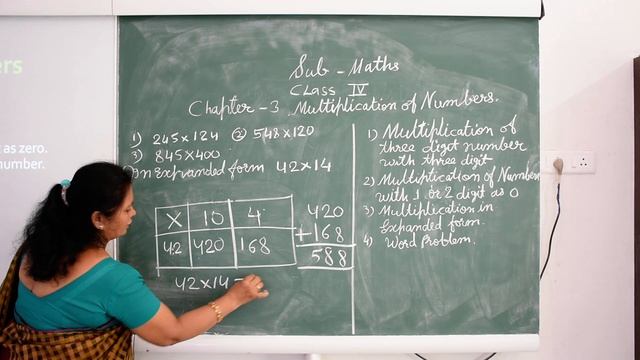 ers
as zero.
number.
Sub - Maths
CLASS IV
Chapter - 3 Multiplication of Numbers.
1) 245 x 124 ② 548 x 120
3) 845 x 400
In expanded form 42 x 14
X 10 4
42 420 168
420
+168
588
42 x 14 =
1) Multiplication of
three digit number
with three digit
2) Multiplication of Number
with 1 or 2 digit as 0
3) Multiplication in
Expanded form.
4) Word Problem.